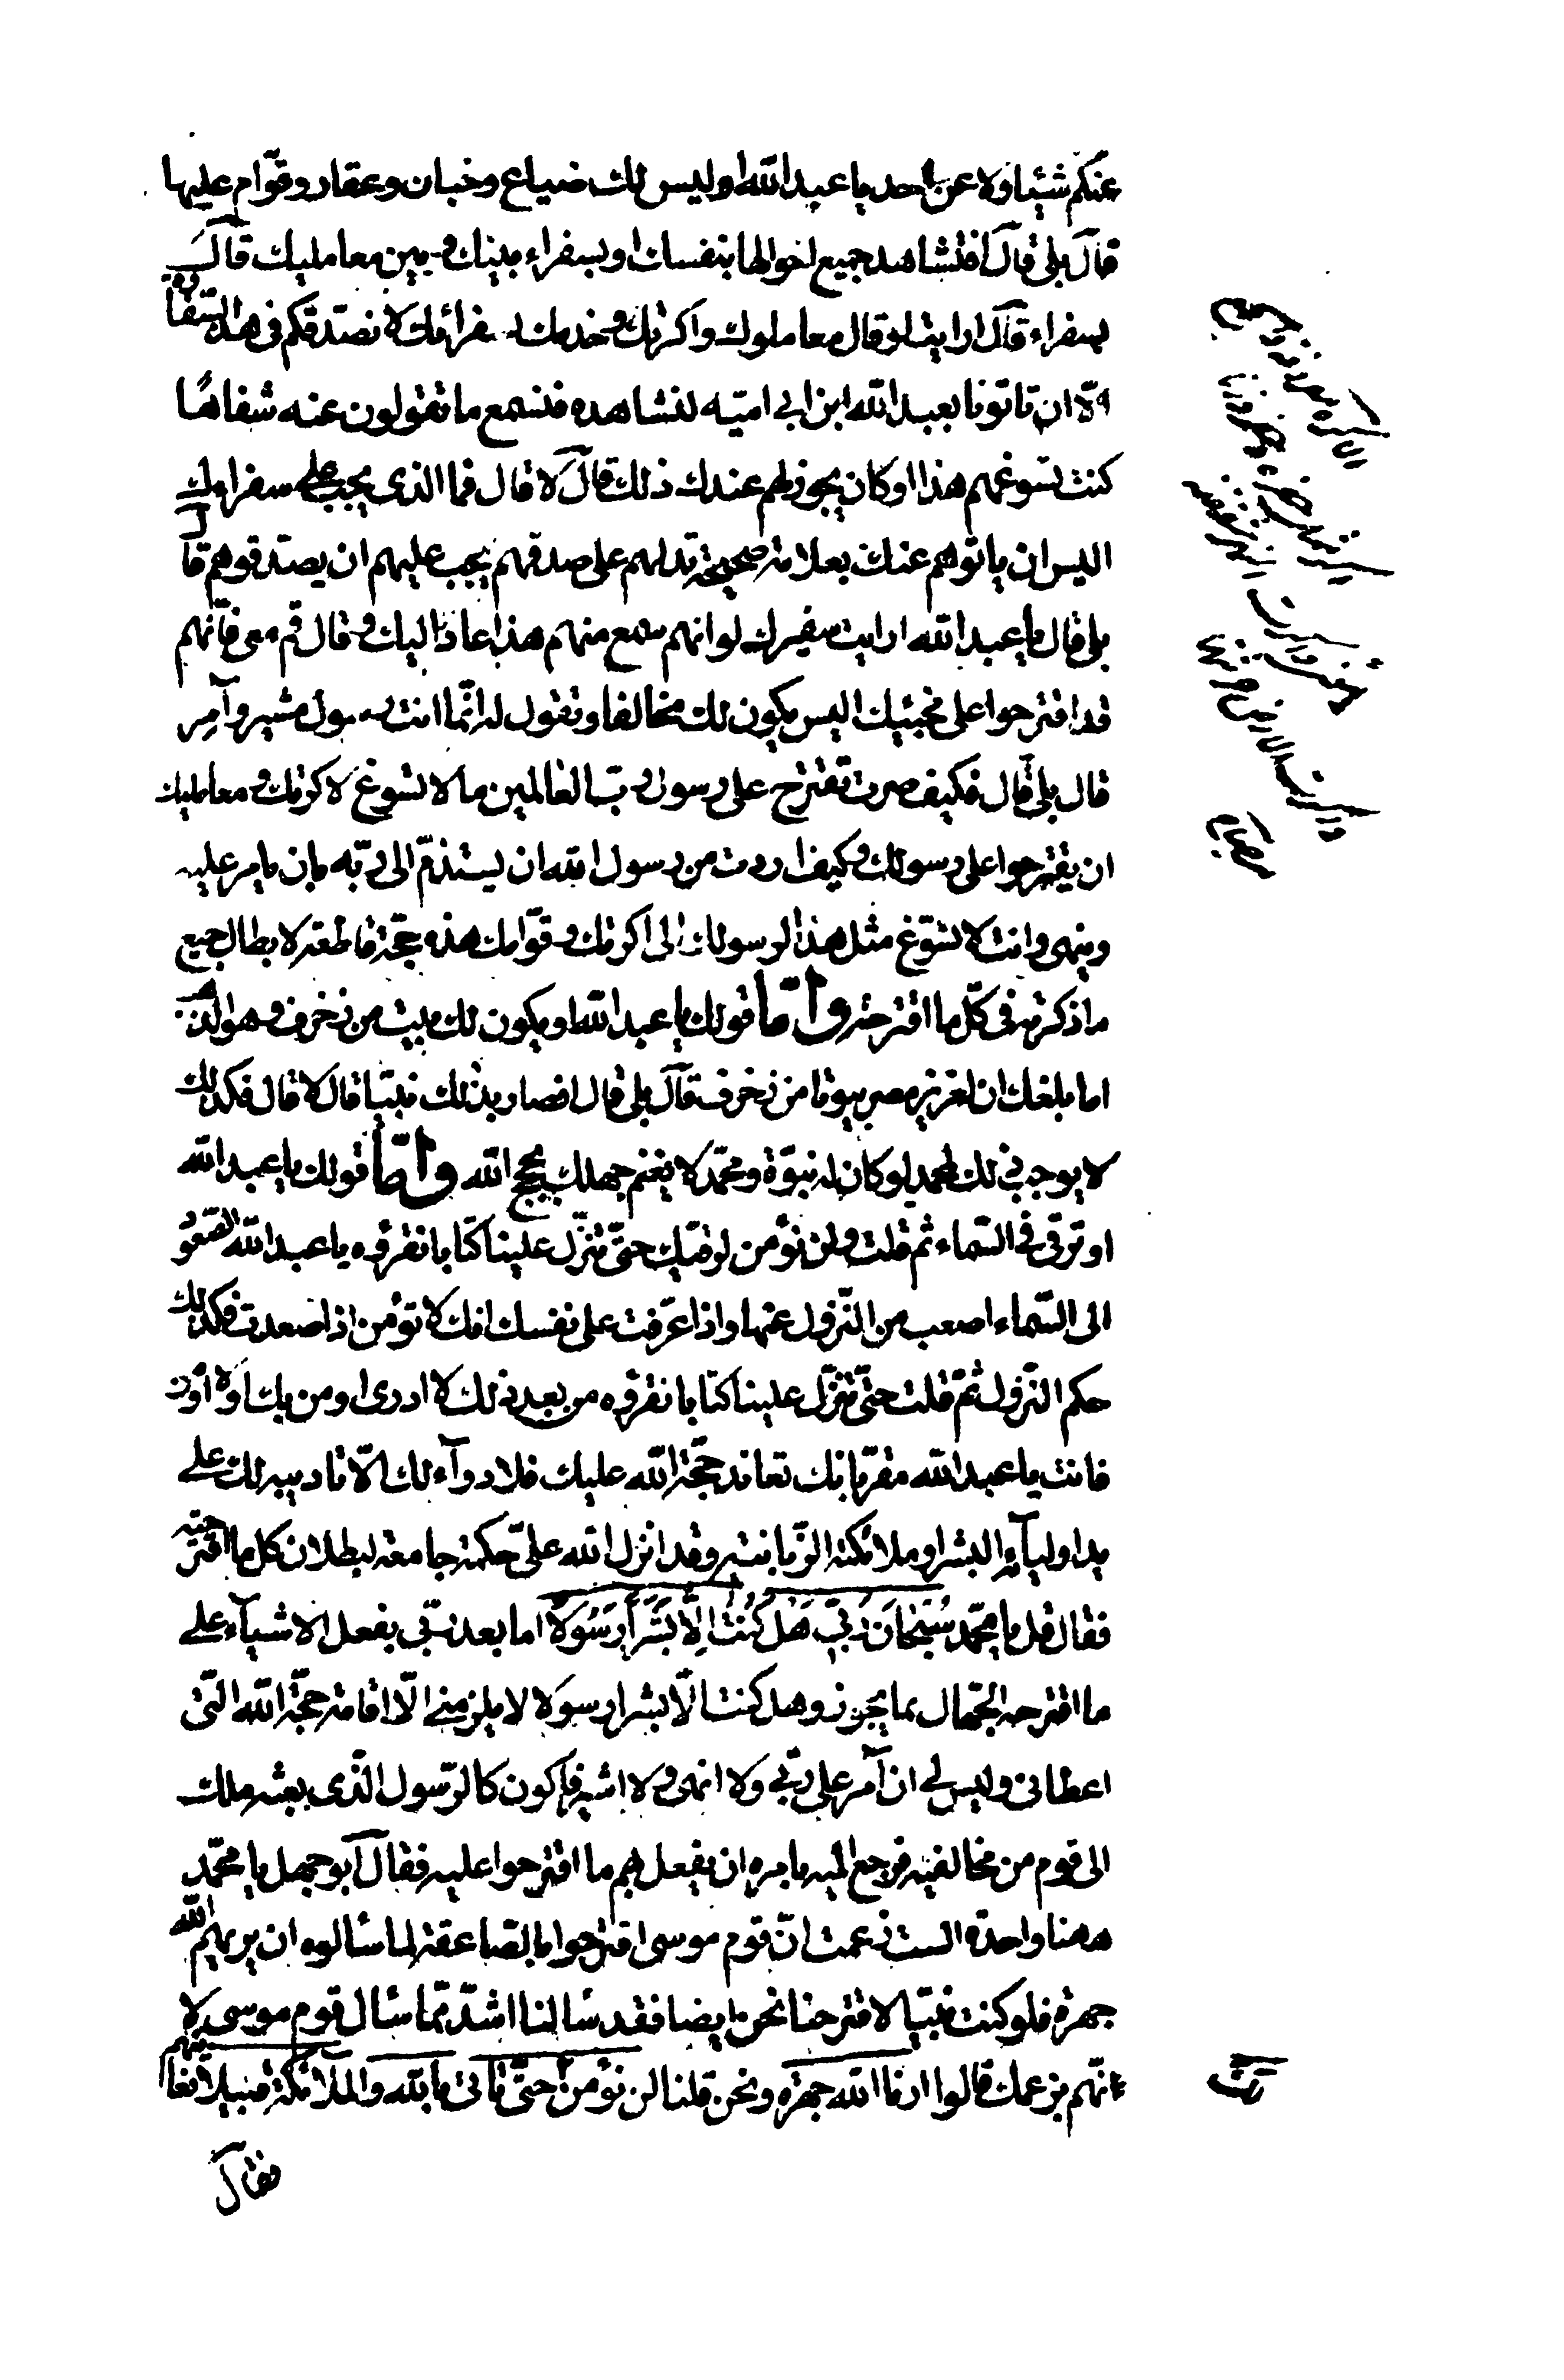 عنكم شيئا ولا عن احد يا عبد الله اوليس لك ضياع وخبان وعقار وقوّام عليها
قال بلى قال افتشاهد جميع احوالها بنفسك او بسفراء بينك و بين معامليك قال
بسفراء قال ارايت لو قال معاملوك واكرتك وخدمك لسفرائك لا نصدّقكم فى هذه السّفارة
الّا ان تاتونا بعبد الله ابن ابى اميّه لنشاهده فنسمع ما تقولون عنه شفاها
كنت تسوغهم هذا اوكان يجوز لهم عندك ذلك قال لا قال فما الذى يجب على سفراءك
اليس ان ياتوهم عنك بعلامة صحيحة تدلهم على صدقهم يجب عليهم ان يصدّقوهم قال
بلى قال يا عبد الله ارايت سفيرك لو انهم سمع منهم هذا عاد اليك و قال قم معى فانّهم
قد اقترحوا على مجيئك اليس يكون لك مخالفا وتقول له انّما انت رسول مشير وآمر
قال بلى قال فكيف صرت تقترح على رسول ربّ العالمين ما لا تسوغ لاكرتك و معامليك
ان يقترحوا على رسولك وكيف اردت من رسول الله ان يستذمّ الى ربّه بان يامر عليه
وينهى وانت لا تسوّغ مثل هذا لرسولك الى اكرتك و قوّامك هذه حجّة قاطعة لابطال جميع
ما ذكرته فى كلّ ما اقترحته وامّا قولك يا عبد الله او يكون لك بيت من زخرف وهو الذهب
اما بلغك ان لعزيز مصر بيوتا من زخرف قال بلى قال افصار بذلك نبيّا قال لا قال فكذلك
لا يوجب ذلك لمحمد لو كان له نبوّة ومحمّد لا يغنم جهلك بحجج الله وامّا قولك يا عبد الله
او ترقى فى السّماء ثم قلت ولن نؤمن لرقيّك حتّى تنزّل علينا كتابا نقرؤه يا عبد الله الصّعود
الى السّماء اصعب من النّزول عنها واذا عترفت على نفسك انك لا تؤمن اذا صعدت فكذلك
حكم النّزول ثمّ قلت حتّى تنزّل علينا كتابا نقرؤه من بعد ذلك لا ادرى اومن بك اولا اومن
فانت يا عبد الله مقرّ بانك تعاند حجّة الله عليك فلا دوآء لك الّا تاديبه لك على
يد اوليآئه البشر او ملائكته الزّبانية وقد انزل الله علىّ حكمة جامعة لبطلان كل ما اقترحته
فقال قل يا محمّد سُبْحَانَ رَبّى هَلْ كُنْتُ اِلَّا بَشَرًا رَسُولًا ما ابعد ربّى بفعل الاشيآء على
ما اقترحه الجهّال بما يجوز وهل كنت الّا بشرا رسولا لا يلزمنى الّا اقامة حجّة الله التى
اعطانى وليس لى ان آمر على ربّى ولا انهى ولا اشير فاكون كالرّسول الّذى بعثه ملك
الى قوم من مخالفيه فرجع اليه يامره ان يفعل بهم ما اقترحوا عليه فقال ابو جهل يا محمّد
ههنا واحدة الست زعمت انّ قوم موسى اقترحوا بالصّاعقة لما سألوه ان يريهم الله
جهرة فلو كنت نبيّا لاقترحنا نحن ايضا فقد سألنا اشدّ ممّا سأل قوم موسى لا
انّهم بزعمك قالوا ارنا الله جهرة ونحن قلنا لن نؤمن حتّى تاتى بالله والملائكة قبيلا نعاينهم
فقال